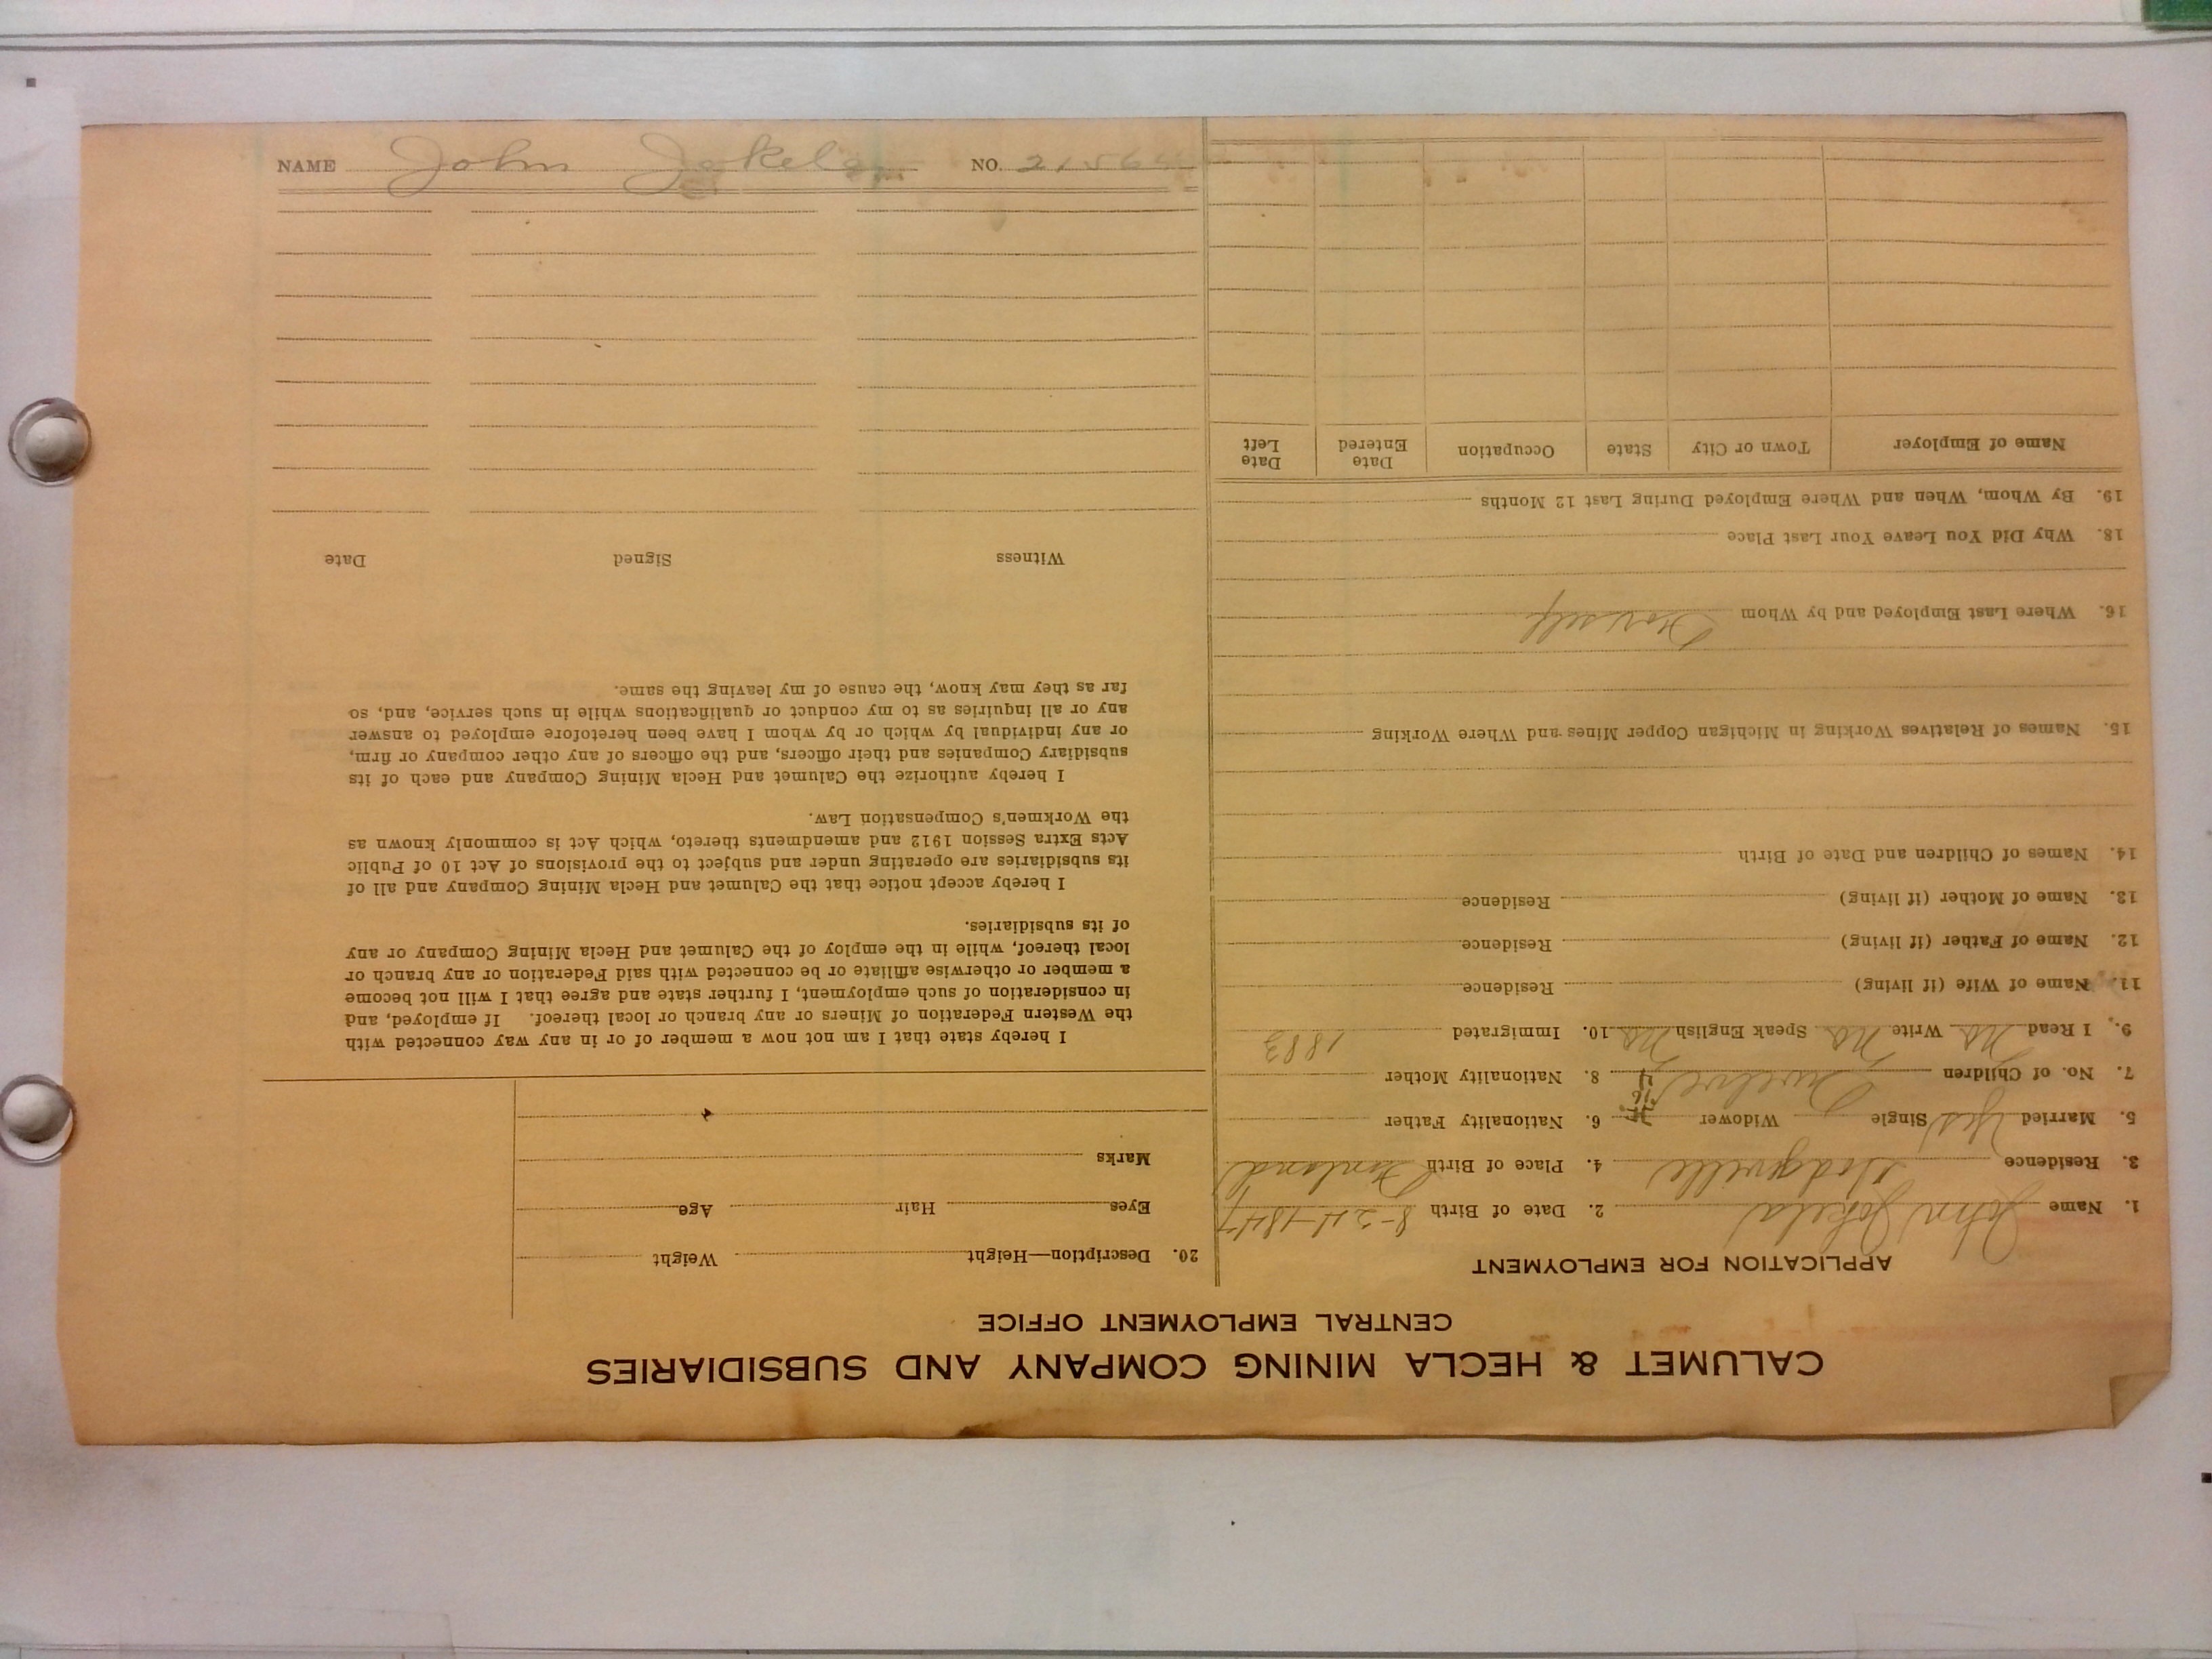 CALUMET & HECLA MINING COMPANY AND SUBSIDIARIES
CENTRAL EMPLOYMENT OFFICE
APPLICATION FOR EMPLOYMENT
1. Name John Jokela 2. Date of Birth 8-24-1847
3. Residence 4. Place of Birth Finland
5. Married Yes Single Widower 6. Nationality Father
7. No. of Children Twelve 8. Nationality Mother
9. I Read No Write No Speak English No 10. Immigrated 1883
11. Name of Wife (if living) Residence
12. Name of Father (if living) Residence
13. Name of Mother (if living) Residence
14. Names of Children and Date of Birth
15. Names of Relatives Working in Michigan Copper Mines and Where Working
16. Where Last Employed and by Whom
18. Why Did You Leave Your Last Place
19. By Whom, When and Where Employed During Last 12 Months
Name of Employer Town or City State Occupation Date Entered Date Left
20. Description—Height Weight
Eyes Hair Age
Marks
I hereby state that I am not now a member of or in any way connected with
the Western Federation of Miners or any branch or local thereof. If employed, and
in consideration of such employment, I further state and agree that I will not become
a member or otherwise affiliate or be connected with said Federation or any branch or
local thereof, while in the employ of the Calumet and Hecla Mining Company or any
of its subsidiaries.
I hereby accept notice that the Calumet and Hecla Mining Company and all of
its subsidiaries are operating under and subject to the provisions of Act 10 of Public
Acts Extra Session 1912 and amendments thereto, which Act is commonly known as
the Workmen's Compensation Law.
I hereby authorize the Calumet and Hecla Mining Company and each of its
subsidiary Companies and their officers, and the officers of any other company or firm,
or any individual by which or by whom I have been heretofore employed to answer
any or all inquiries as to my conduct or qualifications while in such service, and, so
far as they may know, the cause of my leaving the same.
Witness Signed Date
NAME John Jokela NO.